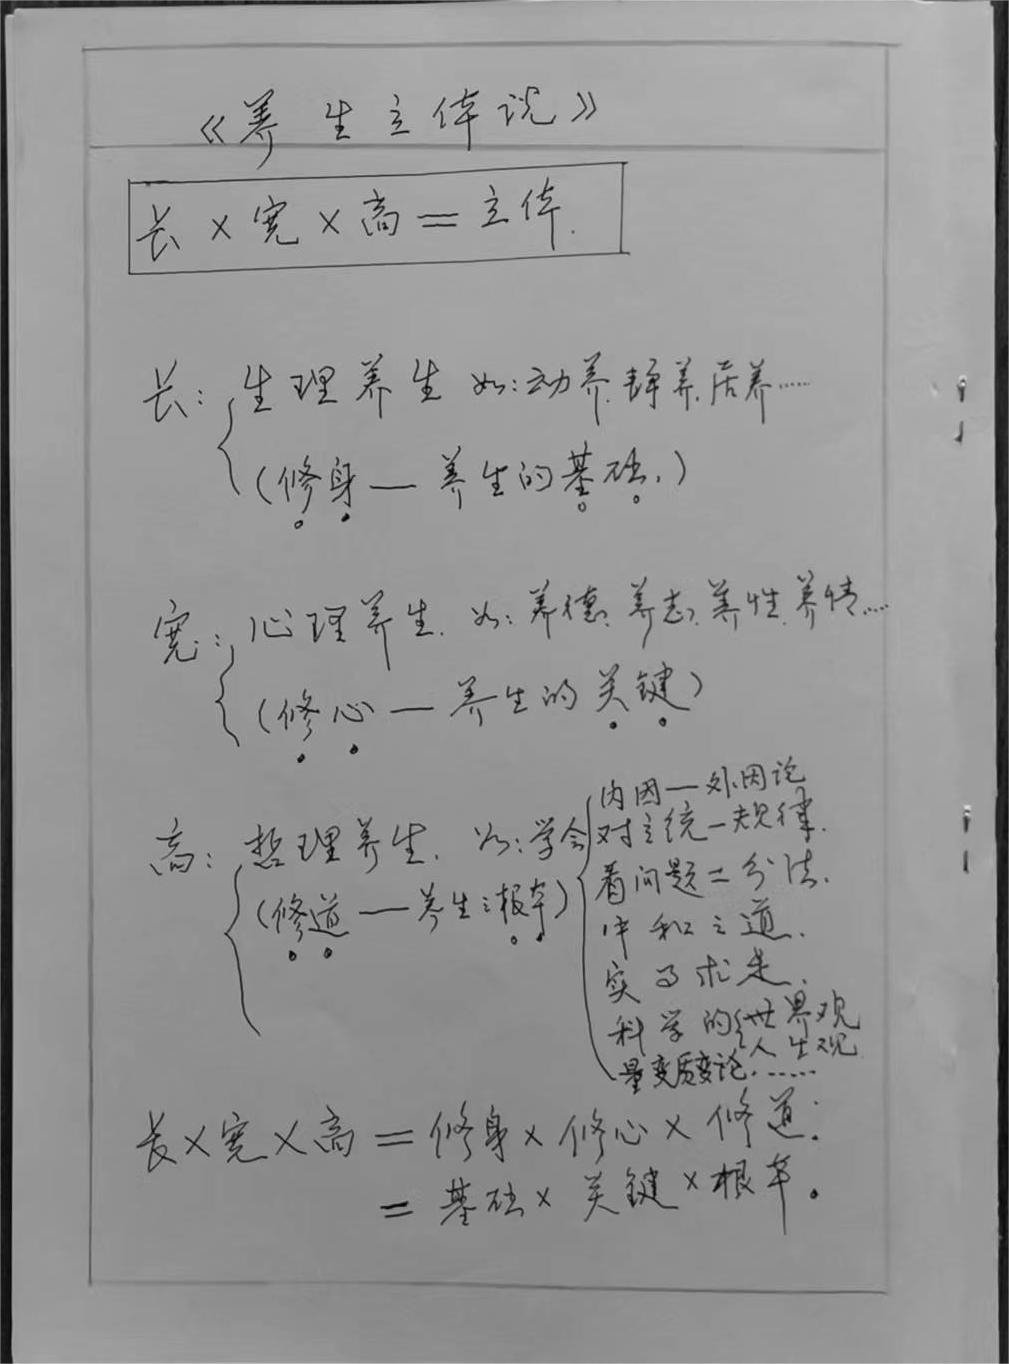 《养生立体说》
长×宽×高=立体.
长: 生理养生 如:动养.静养.居养……
(修身—养生的基础.)
宽: 心理养生. 如:养德.养志.养性.养情……
(修心—养生的关键)
高: 哲理养生. 如:学会
(修道—养生之根本)
内因—外因论
对立统一规律.
看问题二分法.
中和之道.
实事求是.
科学的世界观
人生观
量变质变论.……
长×宽×高=修身×修心×修道:
=基础×关键×根本。